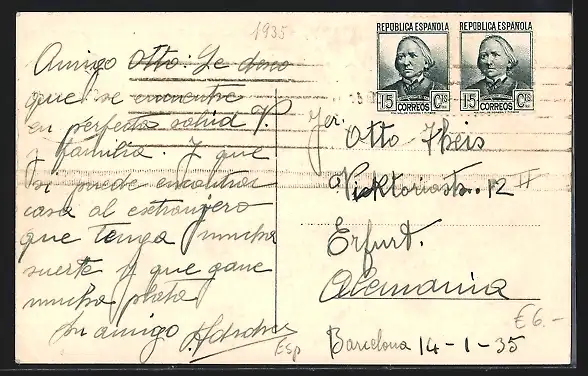 1935
REPUBLICA ESPAÑOLA
REPUBLICA ESPAÑOLA
15 CORREOS Cts
15 CORREOS Cts
Amigo Otto: Le deseo
que se encuentre
en perfecta salud V.
y familia. Y que
si puede encontrar
casa al estranjero
que tenga mucha
suerte y que gane
mucha plata
Su amigo
Otto Theis
Viktoriastr. 12 II
Erfurt.
Alemania
€6.-
Esp
Barcelona 14-1-35